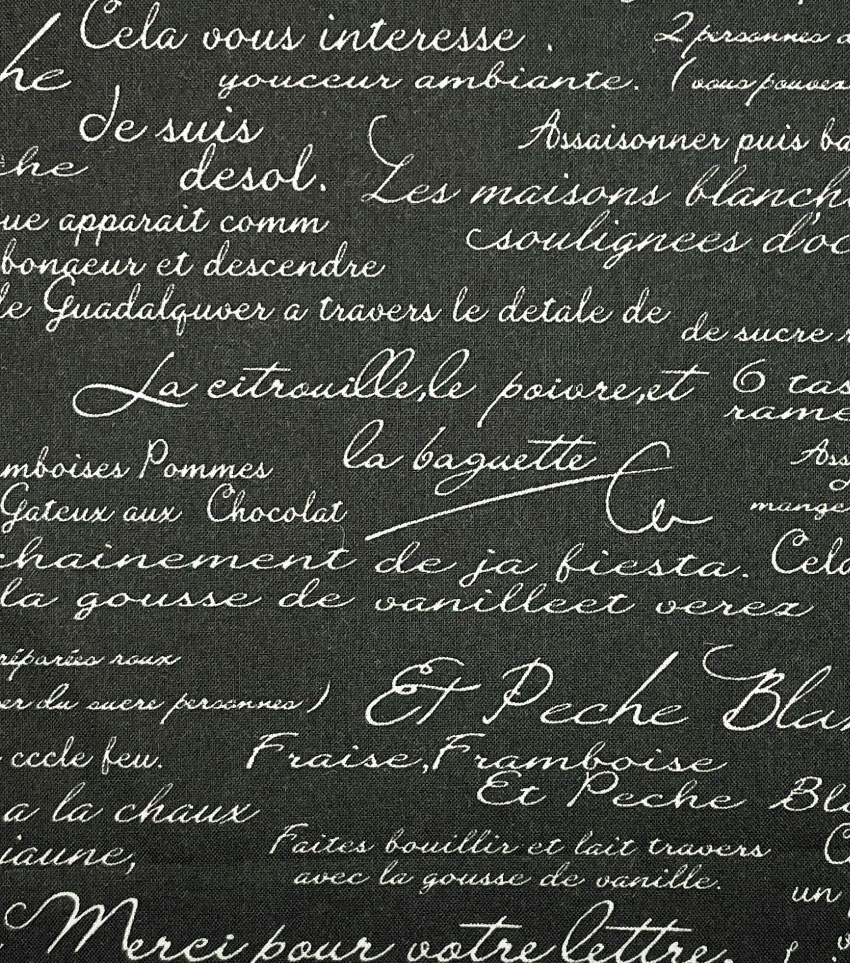 Cela vous interesse .
2 personnes
he
youceur ambiante. (vous pouvez
de suis
Assaisonner puis ba
che
desol.
Les maisons blanch
ue apparait comm
soulignees d'oc
bongeur et descendre
de Guadalquver a travers le detale de
de sucre
La citrouille,le poivre,et
6 tas
rame
mboises Pommes
la baguette
Ass
Gateux aux Chocolat
mange
chainement de ja fiesta.
Cela
la gousse de vanilleet verez
réparées roux
Et Peche Blan
er du sucre personnes)
cccle feu.
Fraise,Framboise
Et Peche Bla
a la chaux
Faites bouillir et lait travers
jaune,
avec la gousse de vanille.
un
Merci pour votre lettre.